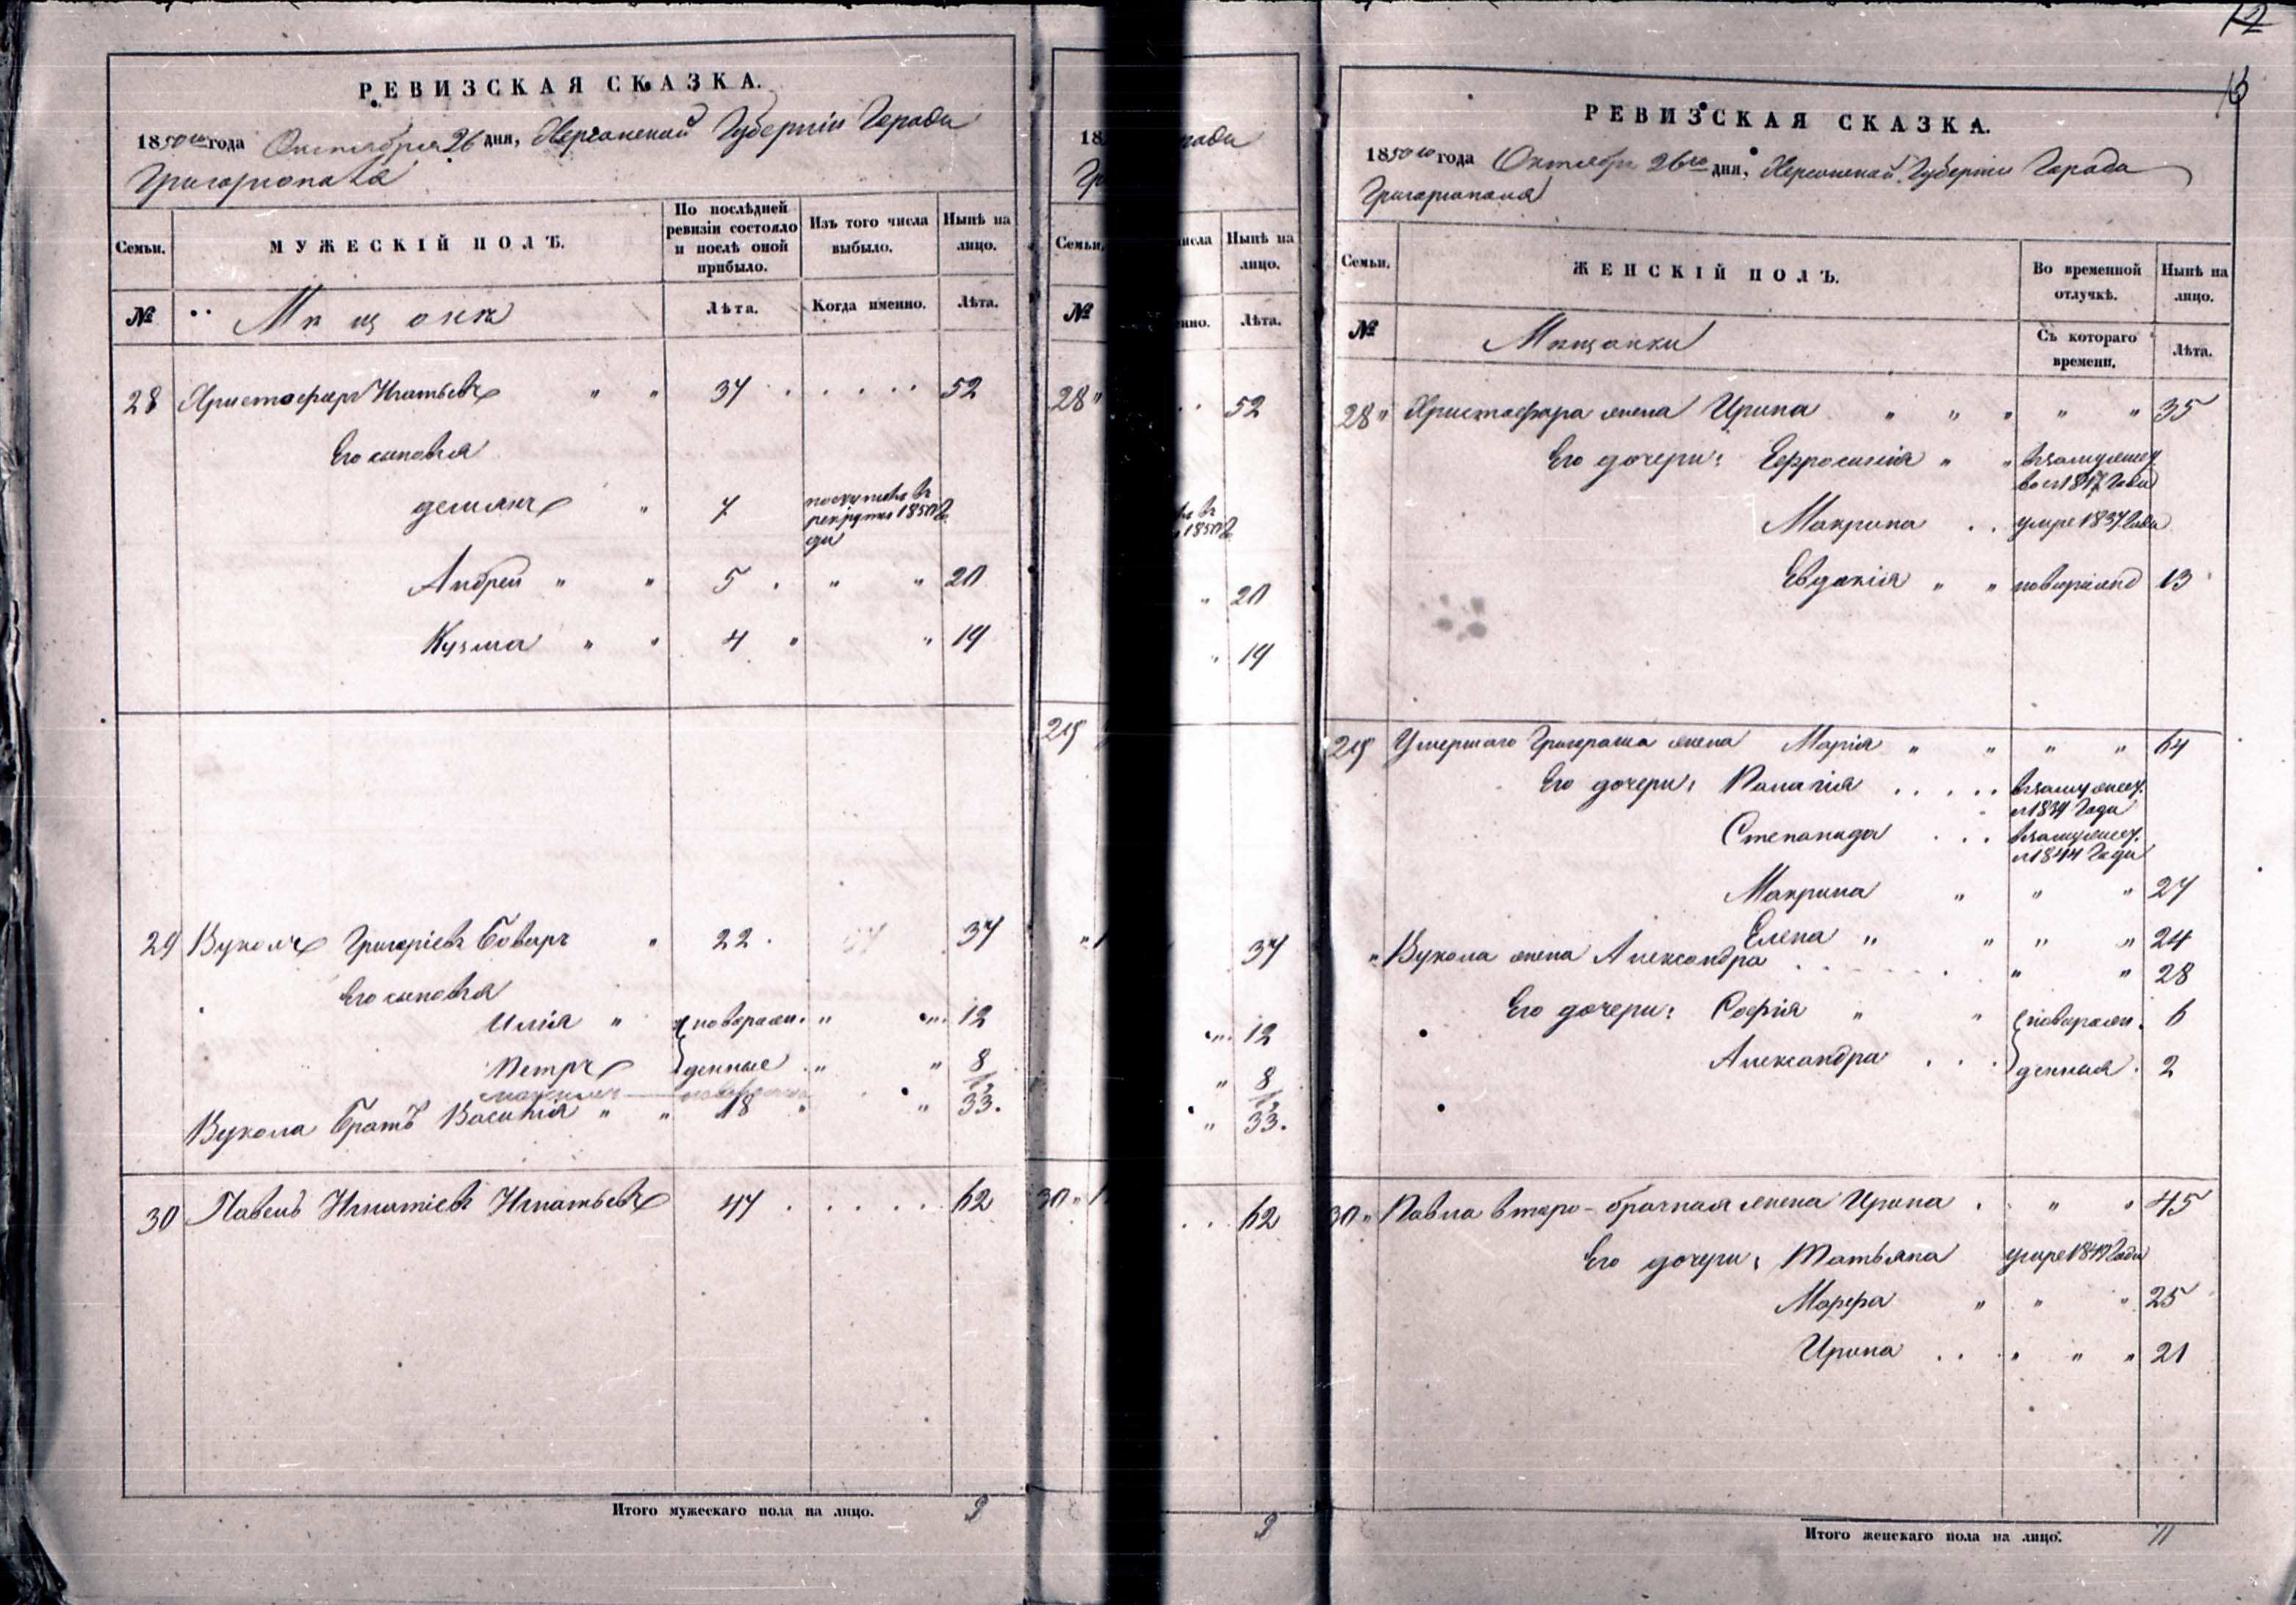 РЕВИЗСКАЯ СКАЗКА.
1850го года Октября 26 дня, Херсонской Губерніи Города
Григоріополя
Семьи. МУЖЕСКІЙ ПОЛЪ. По послѣдней ревизіи состояло и послѣ оной прибыло. Изъ того числа выбыло. Нынѣ на лицо.
№ Мѣщане Лѣта. Когда именно. Лѣта.
28 Христофоръ Игнатьевъ " " 37 52
Его сыновья
Демянъ " 7 поступилъ въ рекруты 1850 го да
Андрей " " 5 " " 20
Кузма " " 4 " " 19
29 Вуколъ Григоріевъ Боваръ " 22 37
Его сыновья
Илія " новорож. " " 12
Петръ денные " " 8
Вукола Братъ Василій " " 18 " " 33.
30 Павелъ Игнатіевъ Игнатьевъ 47 62
Итого мужескаго пола на лицо. 9
18 рода
Гр
Семьи. числа Нынѣ на лицо.
№ нно. Лѣта.
28 " 52
въ 1850 го
" 20
" 19
29 "
" 37
" 12
" 8
" 33.
30 " 62
9
12
РЕВИЗСКАЯ СКАЗКА.
1850го года Октября 26го дня, Херсонской Губерніи Города
Григоріополя
Семьи. ЖЕНСКІЙ ПОЛЪ. Во временной отлучкѣ. Нынѣ на лицо.
№ Мѣщанки Съ котораго времени. Лѣта.
28 " Христофора жена Ирина " " " " " 35
Его дочери: Ефросинія " " въ замужес.
Макрина умре 1837 Года
Евдокія " " новорожд 13
29 Умершаго Григораша жена Марія " " " " 64
Его дочери: Панагія въ замужес.
съ 1839 Года
Степанида въ замужес.
съ 1844 Года
Макрина " " " 27
Елена " " " " 24
" Вукола жена Александра " " 28
Его дочери: Софія " " новорож. 6
Александра денная. 2
30 " Павла второ-брачная жена Ирина " " 45
Его дочери: Татьяна умре 1849 Года
Марфа " " " 25
Ирина " " " 21
Итого женскаго пола на лицо. 11